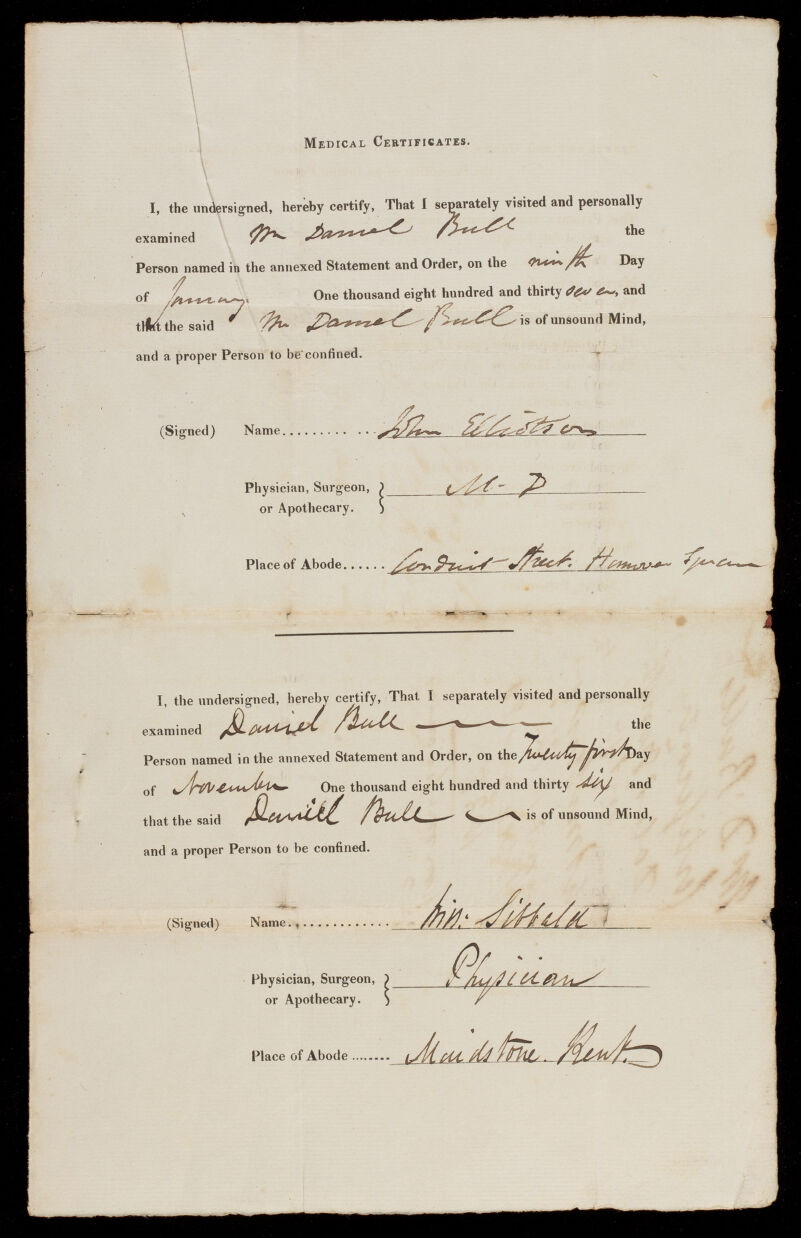 MEDICAL CERTIFICATES.
I, the undersigned, hereby certify, That I separately visited and personally
examined Mr Daniel Bull the
Person named in the annexed Statement and Order, on the ninth Day
of January. One thousand eight hundred and thirty seven, and
that the said Mr Daniel Bull is of unsound Mind,
and a proper Person to be confined.
(Signed) Name............ John Elliotson
Physician, Surgeon, } M-D
or Apothecary.
Place of Abode...... Conduit Street. Hanover Square
I, the undersigned, hereby certify, That I separately visited and personally
examined Daniel Bull the
Person named in the annexed Statement and Order, on the Twenty first Day
of November One thousand eight hundred and thirty six and
that the said Daniell Bull is of unsound Mind,
and a proper Person to be confined.
(Signed) Name.............. Wm: Sibbald
Physician, Surgeon, } Physician
or Apothecary.
Place of Abode ........ Maidstone. Kent.